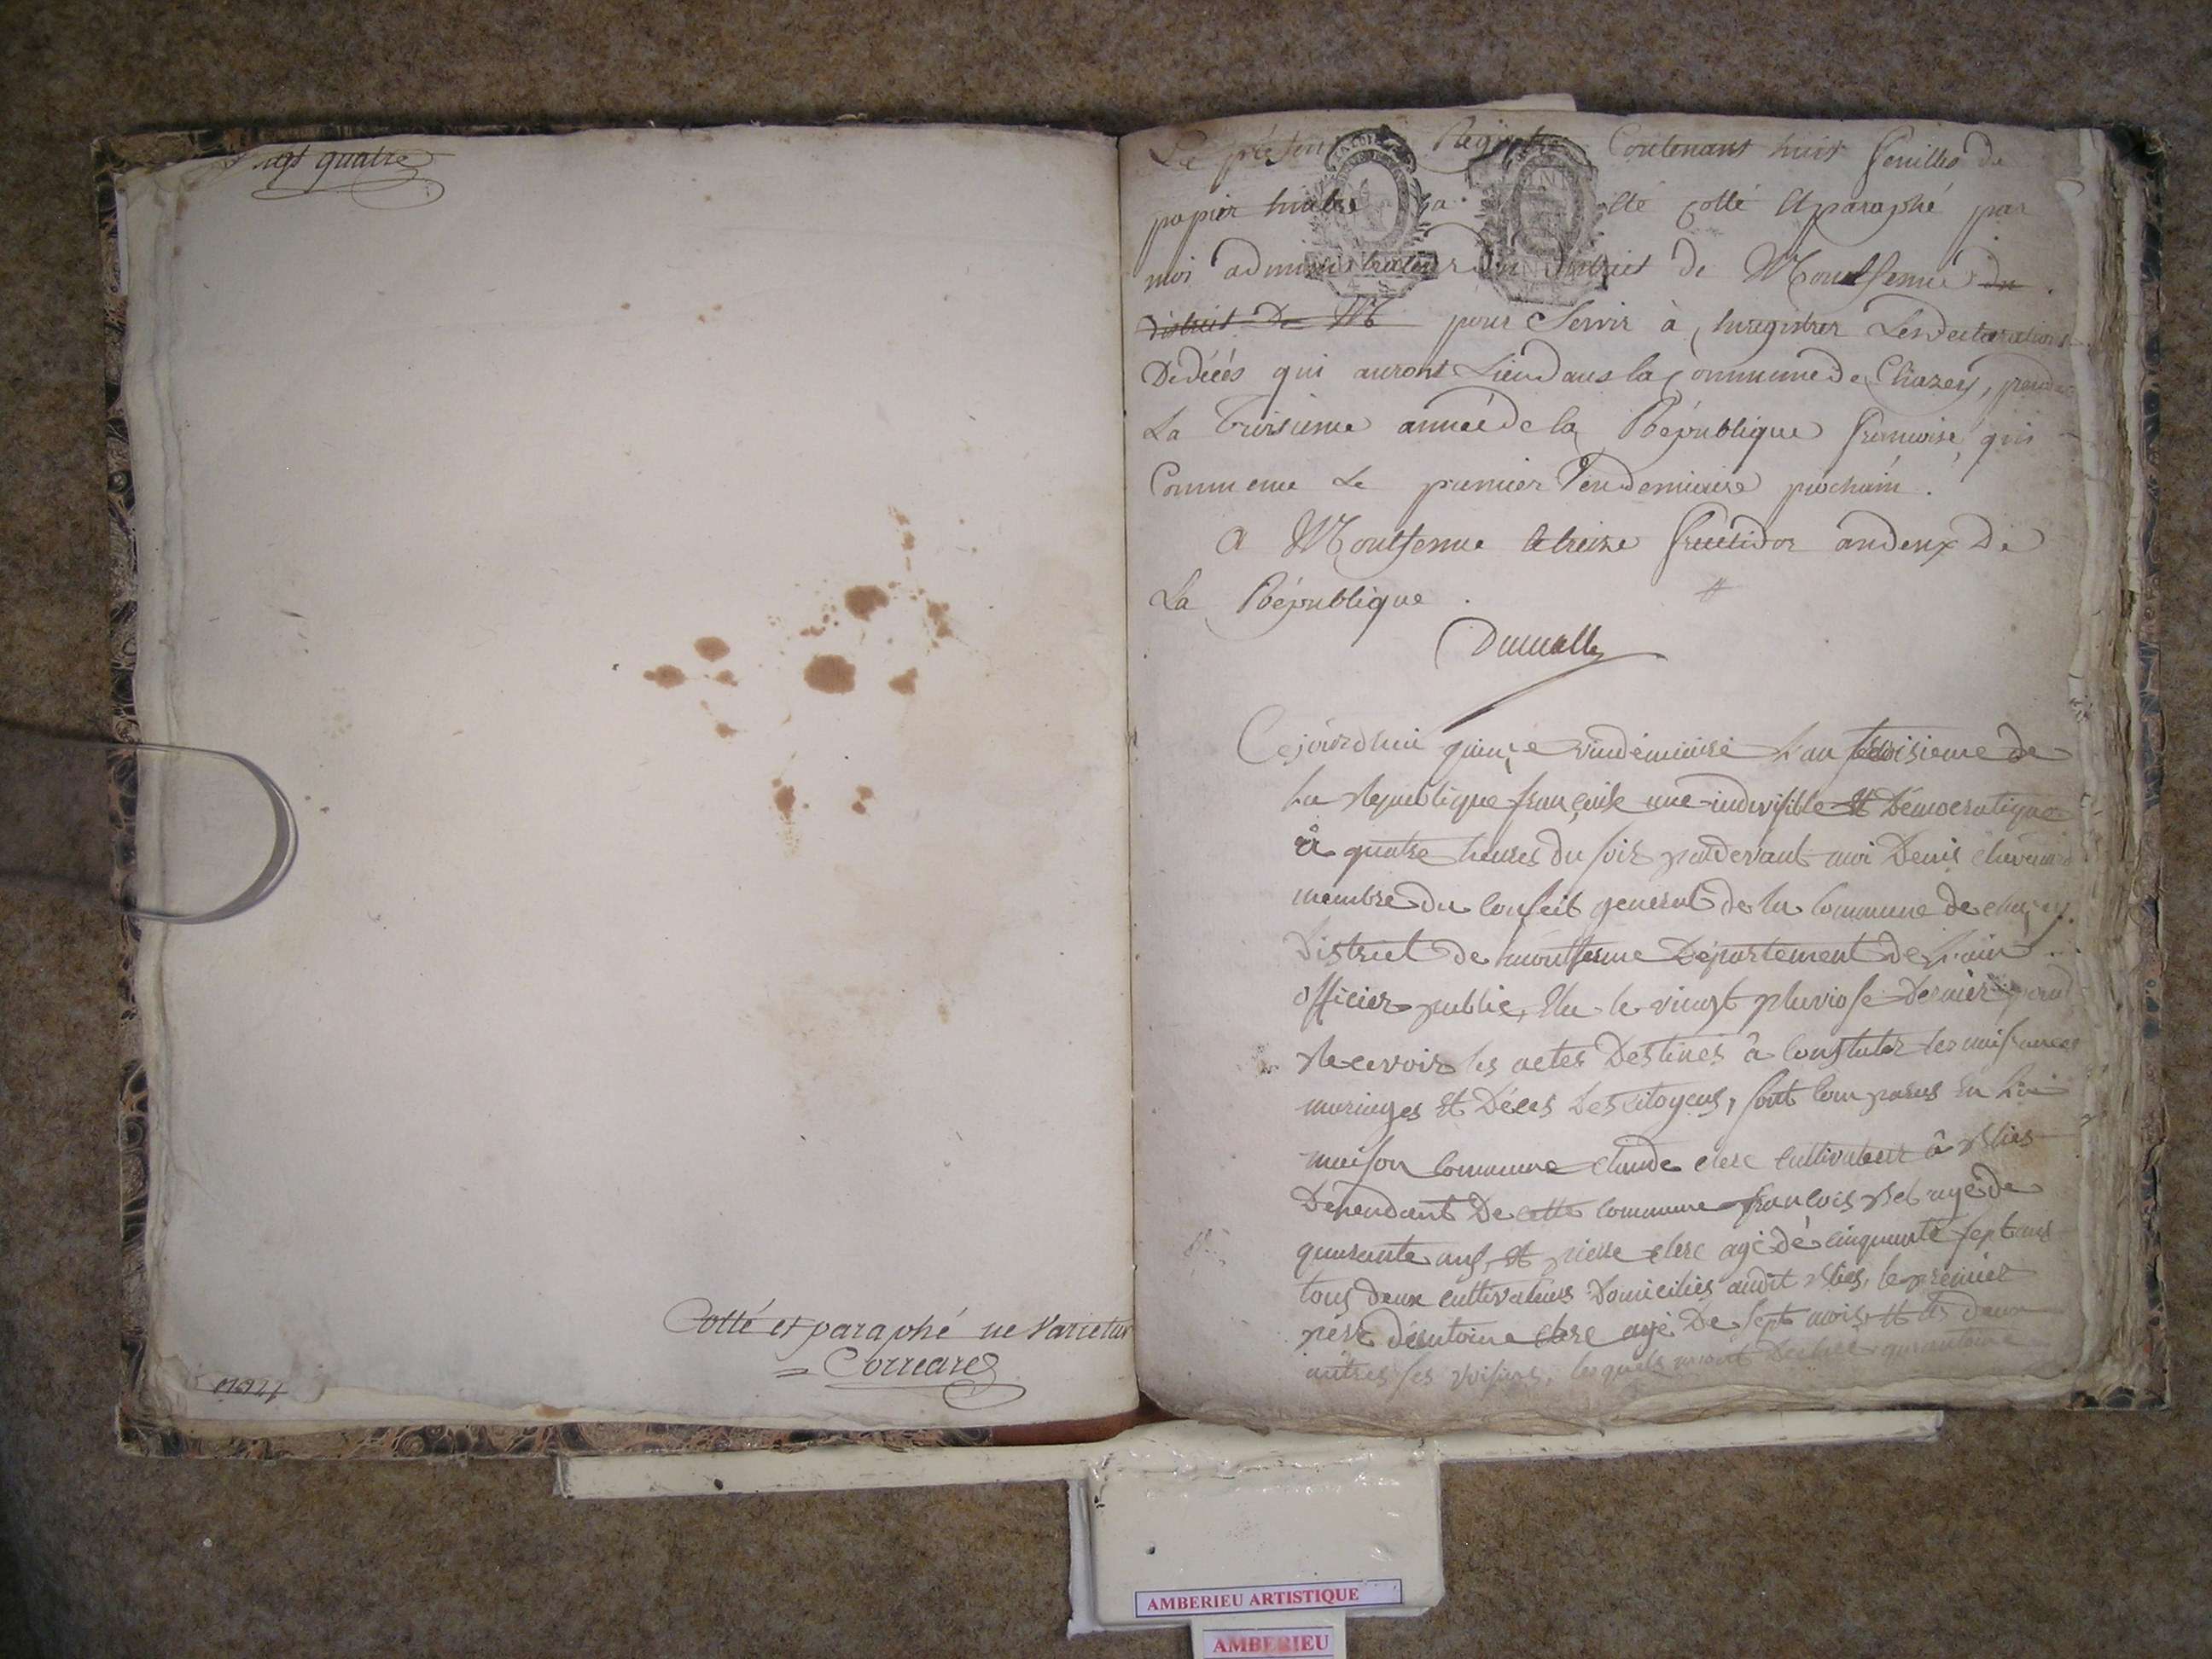 vingt quatre
Cotté et paraphé ne varietur
Correard
Le présent Registre Contenant huit feuilles de
papier timbré a été cotté et paraphé par
moi administrateur du district de Montferme du
district De M pour Servir à Enregistrer Les declarations
De décés qui auront Lieu dans la Commune de Chazey, pendt
La troisieme année de la République francoise, qui
Commence Le premier Vendemiaire prochain.
A Montferme le treize fructidor an deux De
La République.
Cejourdhui quinze vendémiaire L'an troisieme de
La Republique françoise une indivisible et Démocratique
à quatre heures du soir pardevant moi Denis
membre du Conseil general de la Commune de chazey
District de montferme Département de L'ain
officier public, Elu le vingt pluviose Dernier pour
Recevoir les actes Destinés à Constater les naissances
mariages et Déces Des citoyens, sont Comparus En La
maison Commune claude clerc cultivateur à Rlies
Dependant De cette commune francois agé de
quarante ans, et pierre clerc agé de cinquante sept ans
tous deux cultivateurs Domiciliés audit Rlies, le premier
père d'entoine clerc agé De sept mois et les deux
autres ses voisins, lesquels m'ont Déclaré
AMBERIEU ARTISTIQUE
AMBERIEU